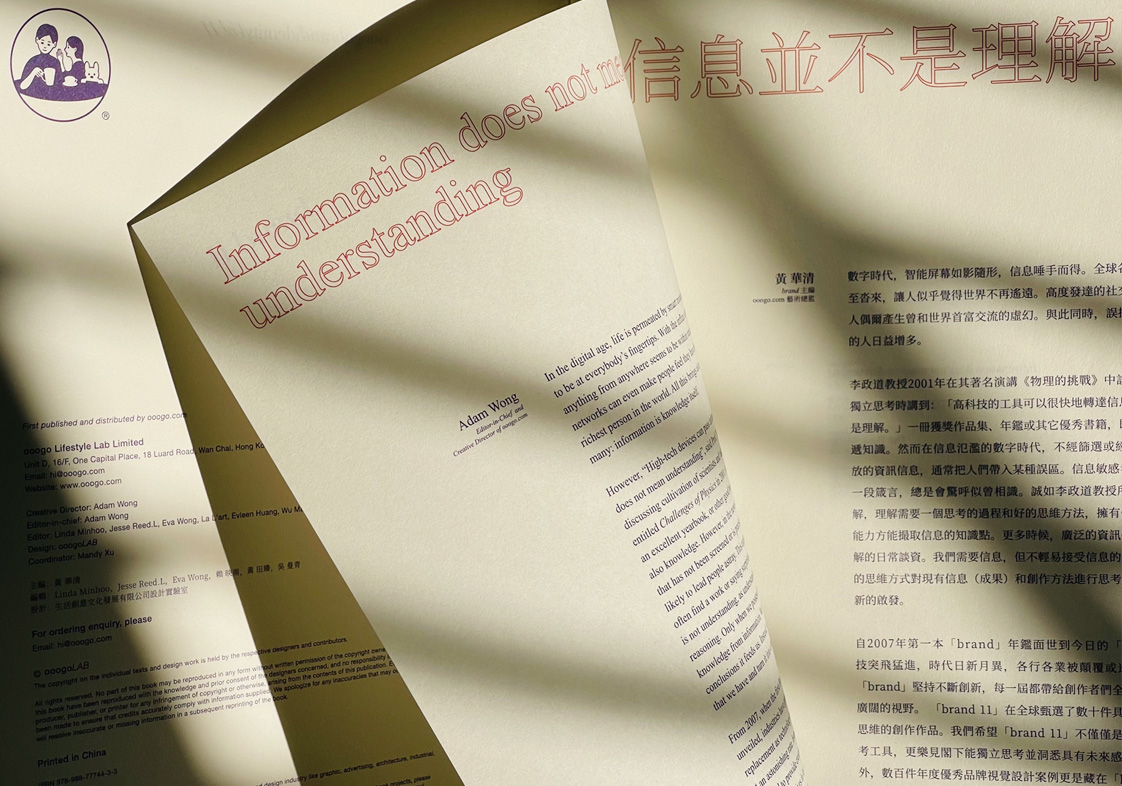 ®
First published and distributed by ooogo.com
ooogo Lifestyle Lab Limited
Unit D, 16/F, One Capital Place, 18 Luard Road, Wan Chai, Hong
Email: hi@ooogo.com
Website: www.ooogo.com
Creative Director: Adam Wong
Editor-in-chief: Adam Wong
Editor: Linda Minhoo, Jesse Reed.L, Eva Wong, La L'art, Evleen Huang, Wu
Design: ooogoLAB
Coordinator: Mandy Xu
主編：黃 華清
編輯：Linda Minhoo, Jesse Reed.L, Eva Wong,
設計：生活創意文化發展有限公司設計實驗室
For ordering enquiry, please
Email: hi@ooogo.com
© ooogoLAB
The copyright on the individual texts and design work is held by the respective designers and contributors.
All rights reserved. No part of this book may be reproduced in any form without written permission of the copyright
this book have been reproduced with the knowledge and prior consent of the designers concerned, and no responsibility
producer, publisher, or printer for any infringement of copyright or otherwise, arising from the contents of this publication.
been made to ensure that credits accurately comply with information supplied. We apologize for any inaccuracies that may
will resolve inaccurate or missing information in a subsequent reprinting of the book.
Printed in China
design industry like graphic, advertising, architecture, industrial,
projects, please
Information does not
understanding
Adam Wong
Editor-in-Chief and
Creative Director of ooogo.com
In the digital age, life is permeated by smart
to be at everybody's fingertips. With the
anything from anywhere seems to be within
networks can even make people feel they
richest person in the world. All this brings
many: information is knowledge itself.
However, "High-tech devices can
does not mean understanding", said
discussing cultivation of scientists
entitled Challenges of Physics in
an excellent yearbook, or other
also knowledge. However, in the
that has not been screened or
likely to lead people astray. The
often find a work or saying
is not understanding, as
reasoning. Only when we
knowledge from information
conclusions it feels as
that we have and turn
From 2007, when the
unveiled, industries
replacement as
an astonishing
信息並不是理解
黃 華清
brand 主編
ooogo.com 藝術總監
數字時代，智能屏幕如影隨形，信息唾手而得。全球
至沓來，讓人似乎覺得世界不再遙遠。高度發達的社
人偶爾產生曾和世界首富交流的虛幻。與此同時，誤
的人日益增多。
李政道教授2001年在其著名演講《物理的挑戰》中
獨立思考時講到：「高科技的工具可以很快地轉達信
是理解。」一冊獲獎作品集、年鑑或其它優秀書籍，
遞知識。然而在信息氾濫的數字時代，不經篩選或
放的資訊信息，通常把人們帶入某種誤區。信息敏感
一段箴言，總是會驚呼似曾相識。誠如李政道教授
解，理解需要一個思考的過程和好的思維方法，擁有
能力方能擷取信息的知識點。更多時候，廣泛的資訊
解的日常談資。我們需要信息，但不輕易接受信息的
的思維方式對現有信息（成果）和創作方法進行思考
新的啟發。
自2007年第一本「brand」年鑑面世到今日的「
技突飛猛進，時代日新月異，各行各業被顛覆或
「brand」堅持不斷創新，每一屆都帶給創作者們
廣闊的視野。「brand 11」在全球甄選了數十件
思維的創作作品。我們希望「brand 11」不僅僅
考工具，更樂見閣下能獨立思考並洞悉具有未來
外，數百件年度優秀品牌視覺設計案例更是藏在「